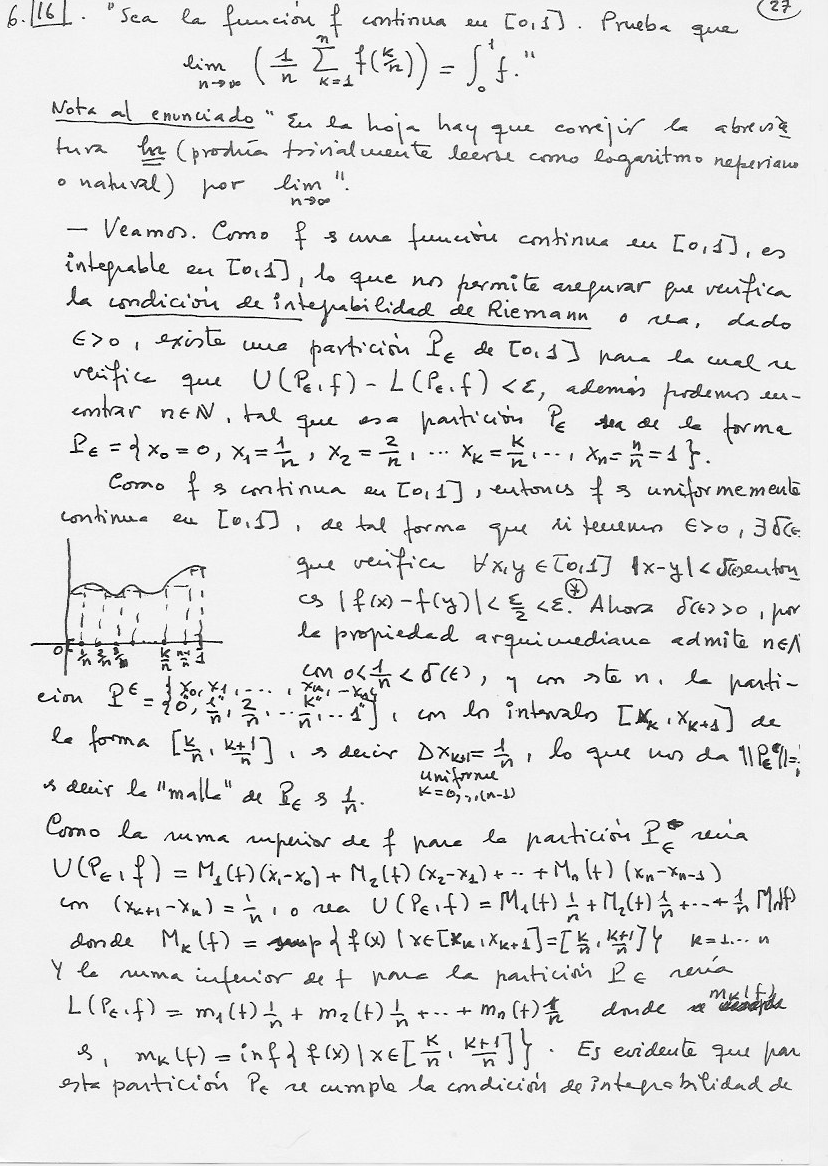 27
6. 16. "Sea la función f continua en [0,1]. Prueba que
lim n→∞ ( 1/n ∑ k=1 n f(k/n) ) = ∫₀¹ f."
Nota al enunciado "En la hoja hay que correjir la abrevia
tura ln (podría trivialmente leerse como logaritmo neperiano
o natural) por lim n→∞".
– Veamos. Como f s una función continua en [0,1], es
integrable en [0,1], lo que nos permite asegurar que verifica
la condición de integrabilidad de Riemann o sea, dado
ϵ>0, existe una partición Pϵ de [0,1] para la cual se
verifica que U(Pϵ,f) - L(Pϵ,f) < ε, además podemos en-
contrar n∈N, tal que esa partición Pϵ sea de la forma
Pϵ = {x₀=0, x₁=1/n, x₂=2/n, ... xₖ=k/n, ..., xₙ=n/n=1}.
Como f s continua en [0,1], entonces f s uniformemente
continua en [0,1], de tal forma que si tenemos ϵ>0, ∃δ(ϵ
que verifica ∀x,y ∈ [0,1] |x-y| < δ(ϵ) enton
ces |f(x) - f(y)| < ε/2 < ε. (*) Ahora δ(ϵ)>0, por
la propiedad arquimediana admite n∈N
0 1/n 2/n 3/n k/n n-1/n 1
con 0 < 1/n < δ(ϵ), y con este n, la parti-
x₀, x₁, ..., xₖ, ... xₙ
ción Pϵ = {0, 1/n, 2/n, ... k/n, ... 1}, con los intervalos [xₖ, xₖ₊₁] de
la forma [k/n, k+1/n], s decir Δxₖ₊₁ = 1/n, lo que nos da ||Pϵ|| =
uniforme
s decir la "malla" de Pϵ s 1/n. k=0,..,(n-1)
Como la suma superior de f para la partición Pϵ sería
U(Pϵ,f) = M₁(f)(x₁-x₀) + M₂(f)(x₂-x₁) + ... + Mₙ(f)(xₙ-xₙ₋₁)
con (xₖ₊₁-xₖ) = 1/n, o sea U(Pϵ,f) = M₁(f)1/n + M₂(f)1/n + ... + 1/n Mₙ(f)
donde Mₖ(f) = sup{f(x) | x∈[xₖ,xₖ₊₁] = [k/n, k+1/n]} k=1...n
Y la suma inferior de f para la partición Pϵ sería
L(Pϵ,f) = m₁(f)1/n + m₂(f)1/n + ... + mₙ(f)1/n donde mₖ(f)
s, mₖ(f) = inf{f(x) | x∈[k/n, k+1/n]}. Es evidente que par
esta partición Pϵ se cumple la condición de integrabilidad de